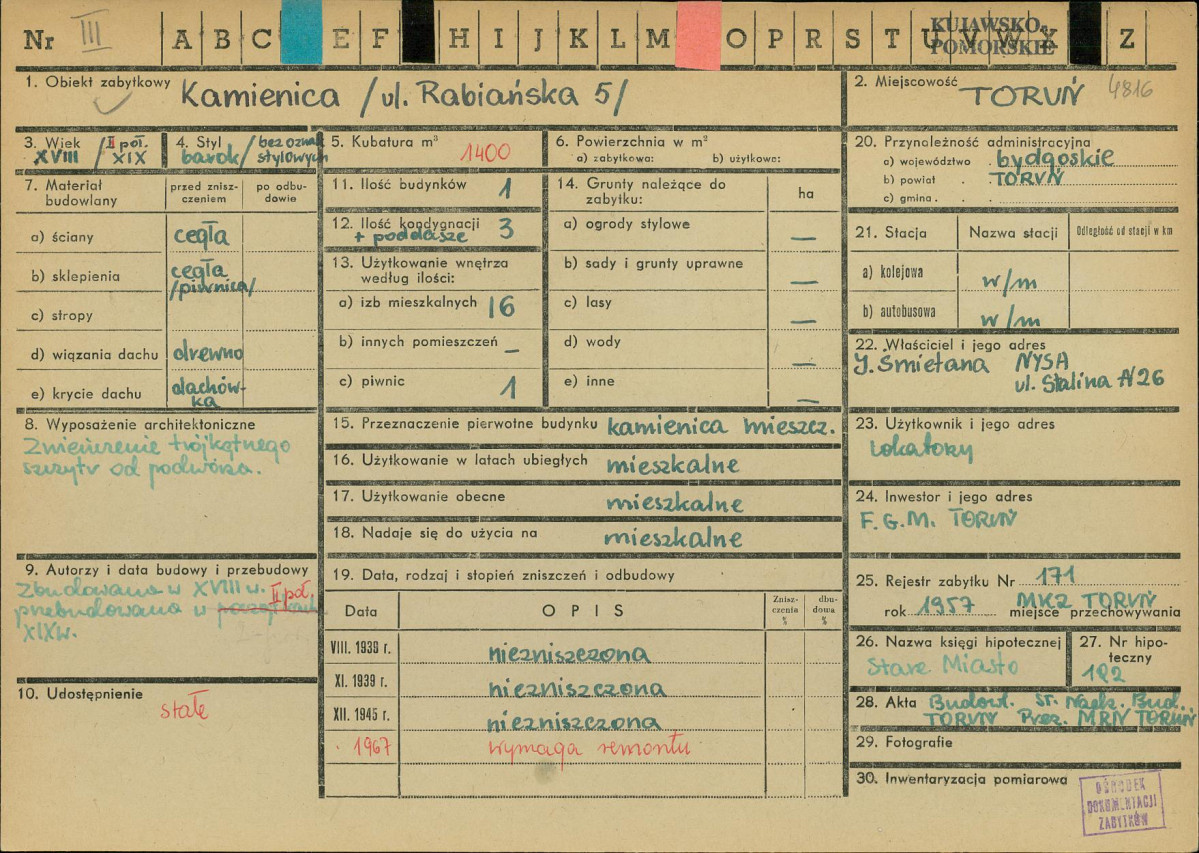 Nr III A B C E F H I J K L M O P R S T U V W X Z
KUJAWSKO-
POMORSKIE
1. Obiekt zabytkowy Kamienica /ul. Rabiańska 5/
2. Miejscowość TORUŃ 4816
3. Wiek XVIII / II poł. XIX
4. Styl barok/bez oznak stylowych
5. Kubatura m³ 1400
6. Powierzchnia w m²
a) zabytkowa: b) użytkowa:
7. Materiał budowlany
przed zniszczeniem
po odbudowie
a) ściany cegła
b) sklepienia cegła /piwnica/
c) stropy
d) wiązania dachu drewno
e) krycie dachu dachówka
8. Wyposażenie architektoniczne
Zwieńczenie trójkątnego
szczytu od podwórza.
9. Autorzy i data budowy i przebudowy
Zbudowana w XVIII w. II poł.
przebudowana w
XIXw.
10. Udostępnienie
stałe
11. Ilość budynków 1
12. Ilość kondygnacji 3
+ poddasze
13. Użytkowanie wnętrza
według ilości:
a) izb mieszkalnych 16
b) innych pomieszczeń –
c) piwnic 1
14. Grunty należące do
zabytku:
ha
a) ogrody stylowe —
b) sady i grunty uprawne —
c) lasy —
d) wody —
e) inne —
15. Przeznaczenie pierwotne budynku kamienica mieszcz.
16. Użytkowanie w latach ubiegłych mieszkalne
17. Użytkowanie obecne mieszkalne
18. Nadaje się do użycia na mieszkalne
19. Data, rodzaj i stopień zniszczeń i odbudowy
Data OPIS Zniszczenia % dbudowa %
VIII. 1939 r. niezniszczona
XI. 1939 r. niezniszczona
XII. 1945 r. niezniszczona
1967 wymaga remontu
20. Przynależność administracyjna
a) województwo bydgoskie
b) powiat TORUŃ
c) gmina
21. Stacja Nazwa stacji Odległość od stacji w km
a) kolejowa w/m
b) autobusowa w/m
22. Właściciel i jego adres
J. Śmietana NYSA
ul. Stalina N 26
23. Użytkownik i jego adres
Lokatorzy
24. Inwestor i jego adres
F.G.M. TORUŃ
25. Rejestr zabytku Nr 171
rok 1957 MKZ TORUŃ
miejsce przechowywania
26. Nazwa księgi hipotecznej
Stare Miasto
27. Nr hipoteczny
182
28. Akta Budowl. Bud.
TORUŃ Prez. MRN TORUŃ
29. Fotografie
30. Inwentaryzacja pomiarowa
OŚRODEK
DOKUMENTACJI
ZABYTKÓW